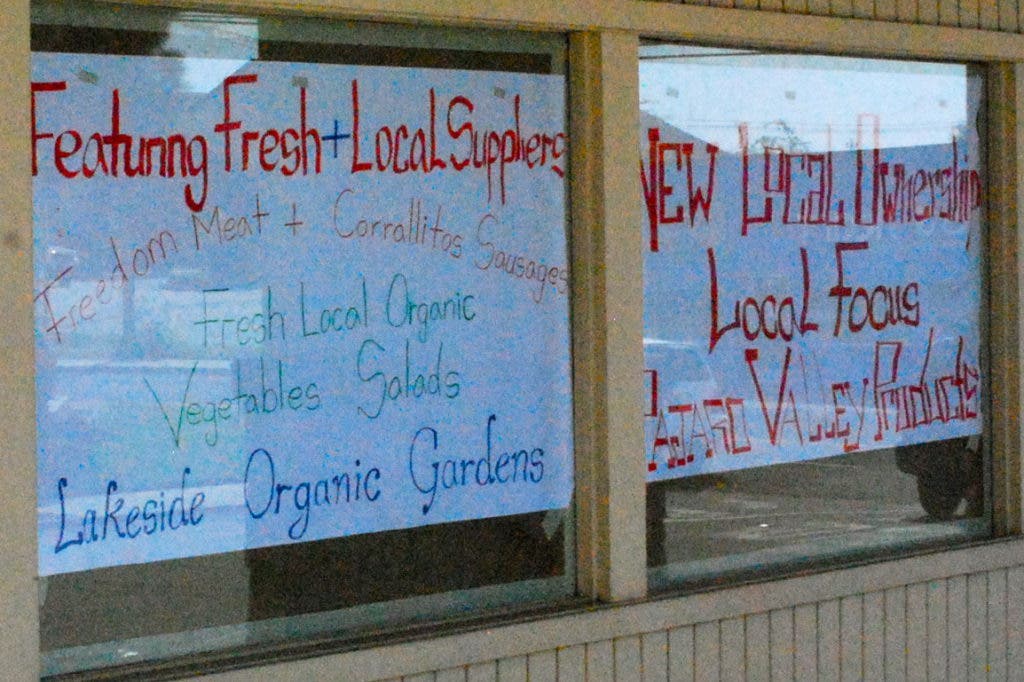 Featuring Fresh + Local Suppliers
Freedom Meat + Corrallitos Sausages
Fresh Local Organic
Vegetables Salads
Lakeside Organic Gardens
NEW Local Ownership
Local Focus
PAJARO VALLEY Products